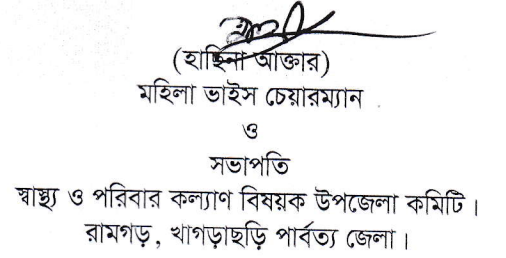 (হাছিনা আক্তার)
মহিলা ভাইস চেয়ারম্যান
ও
সভাপতি
স্বাস্থ্য ও পরিবার কল্যাণ বিষয়ক উপজেলা কমিটি।
রামগড়, খাগড়াছড়ি পার্বত্য জেলা।